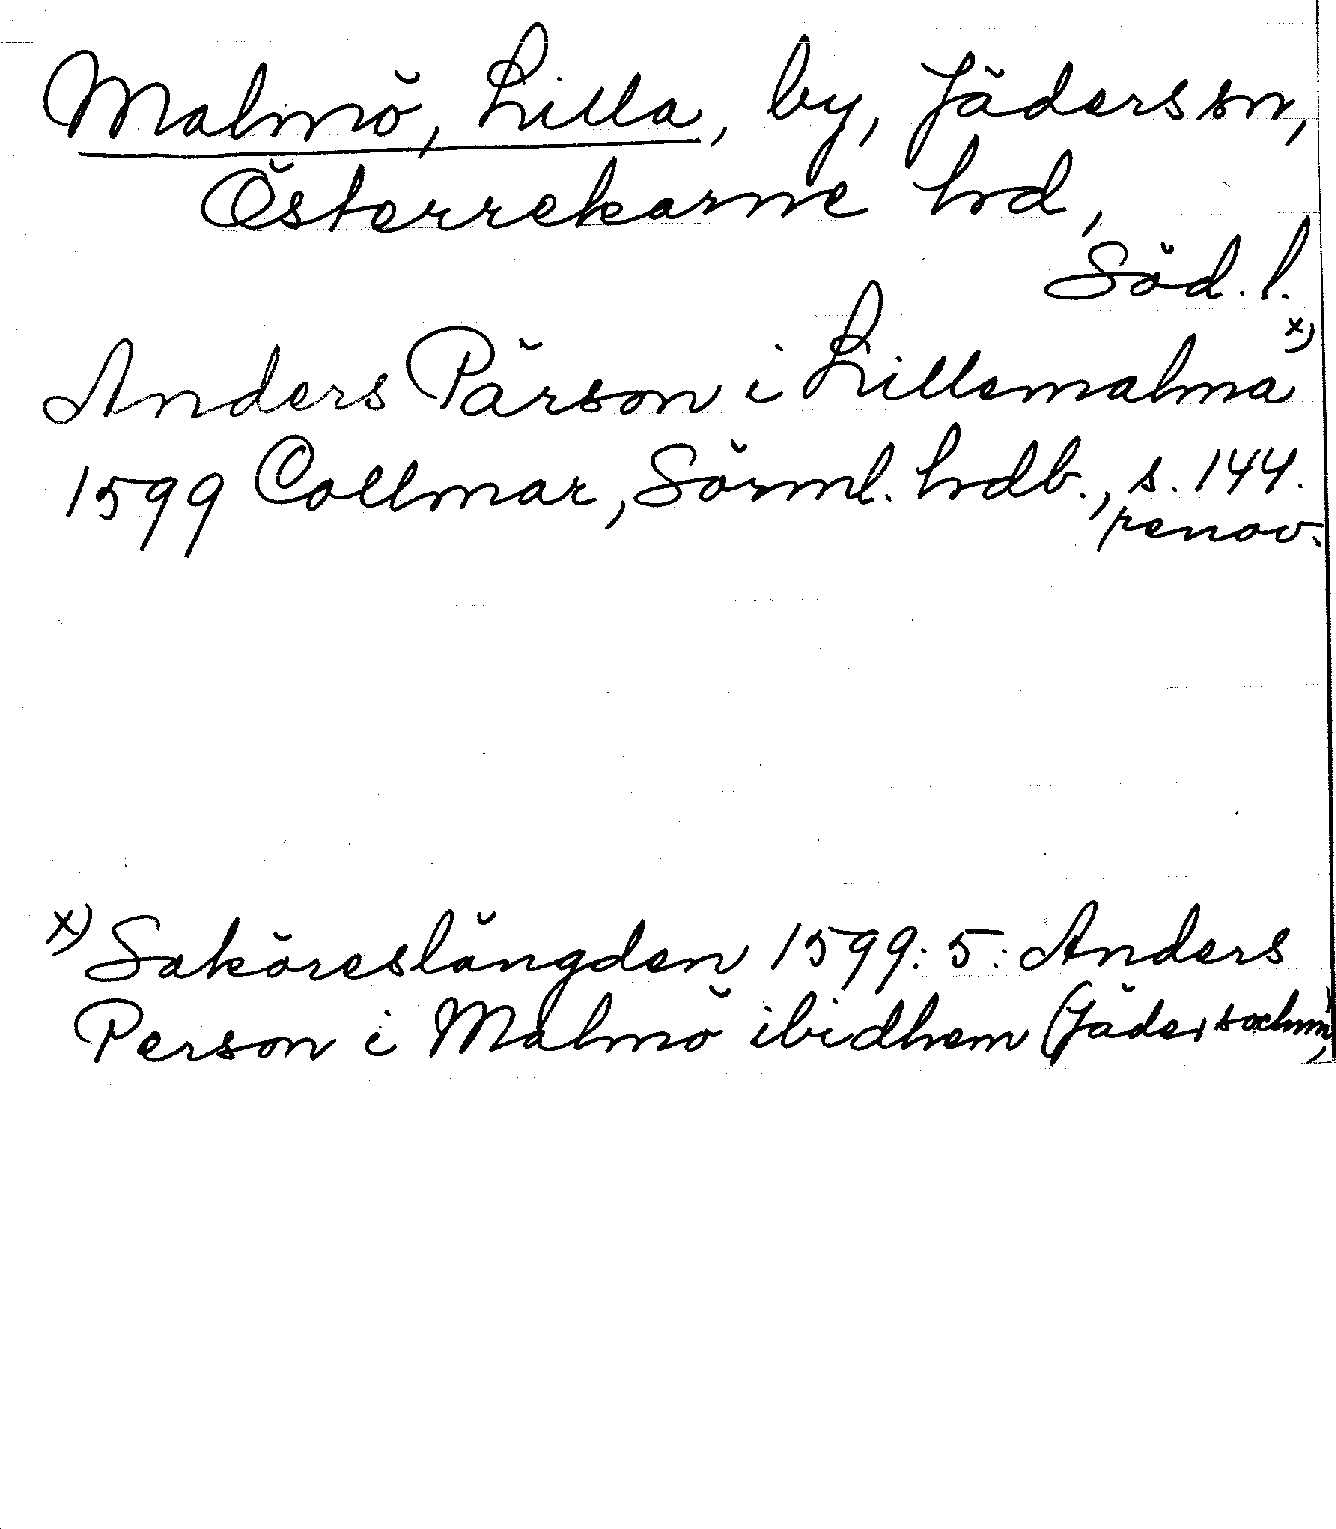 Malmö, Lilla, by, Jäders sn,
Österrekarne hd,
Söd. l.
Anders Pärson i Lillemalma x)
1599 Collmar, Sörml. hdb., s. 144.
renov.
x) Saköreslängden 1599: 5: Anders
Person i Malmö ibidhem (Jäder sochnn)